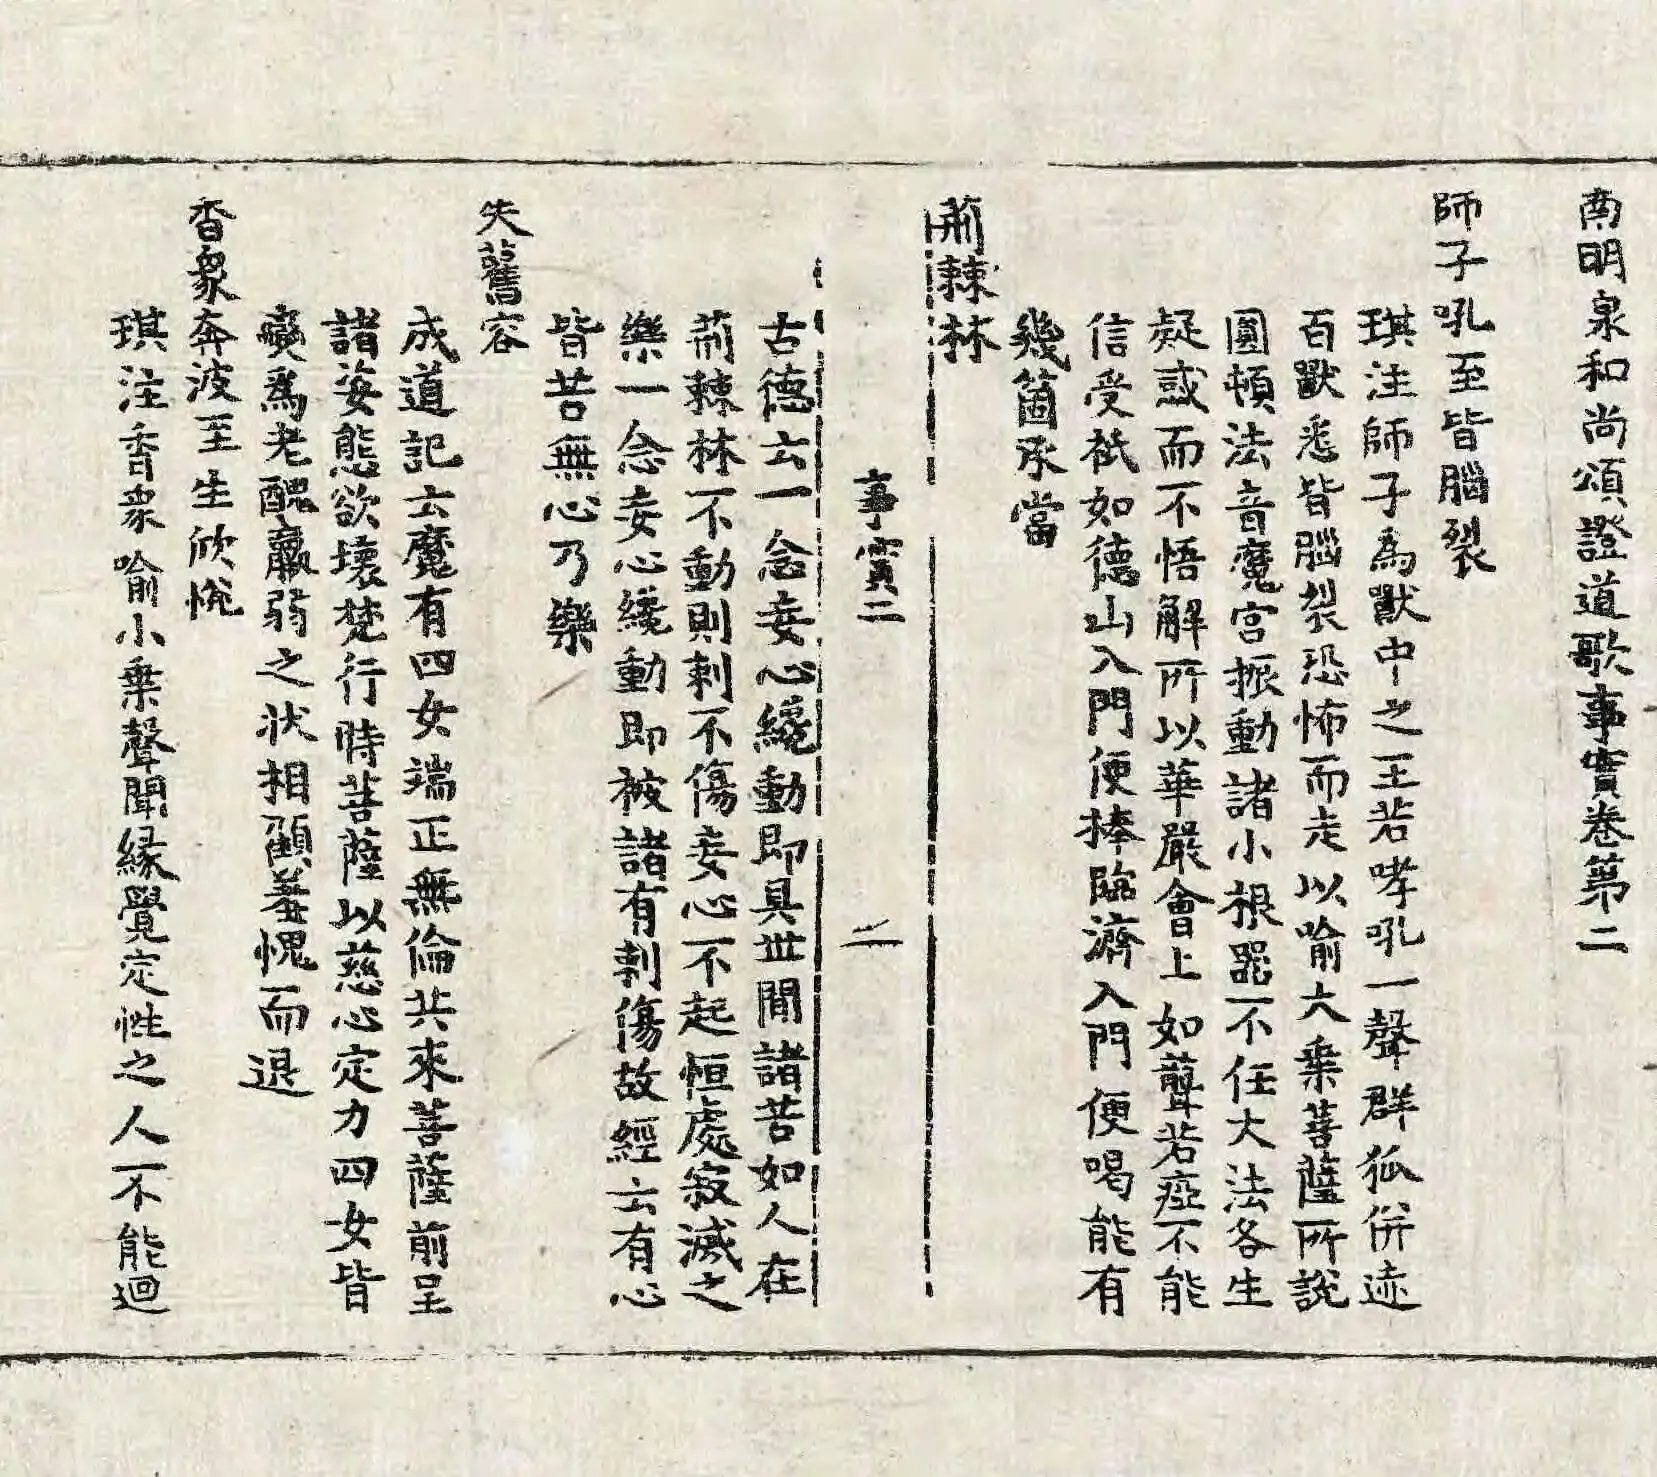 南明泉和尚頌證道歌事實卷第二
師子吼至皆腦裂
琪注師子爲獸中之王若哮吼一聲群狐併迹
百獸悉皆腦裂恐怖而走以喻大乗菩薩所說
圓頓法音魔宮振動諸小根器不任大法各生
疑惑而不悟解所以華嚴會上如聾若瘂不能
信受秖如德山入門便捧臨濟入門便喝能有
幾箇承當
荊棘林
事實二
二
古德云一念妄心纔動即具世間諸苦如人在
荊棘林不動則刺不傷妄心不起恒處寂滅之
樂一念妄心纔動即被諸有刺傷故經云有心
皆苦無心乃樂
失舊容
成道記云魔有四女端正無倫共來菩薩前呈
諸姿態欲壞梵行時菩薩以慈心定力四女皆
變爲老醜羸弱之状相顧羞愧而退
香象奔波至生欣悅
琪注香象喻小乗聲聞緣覺定性之人不能迴